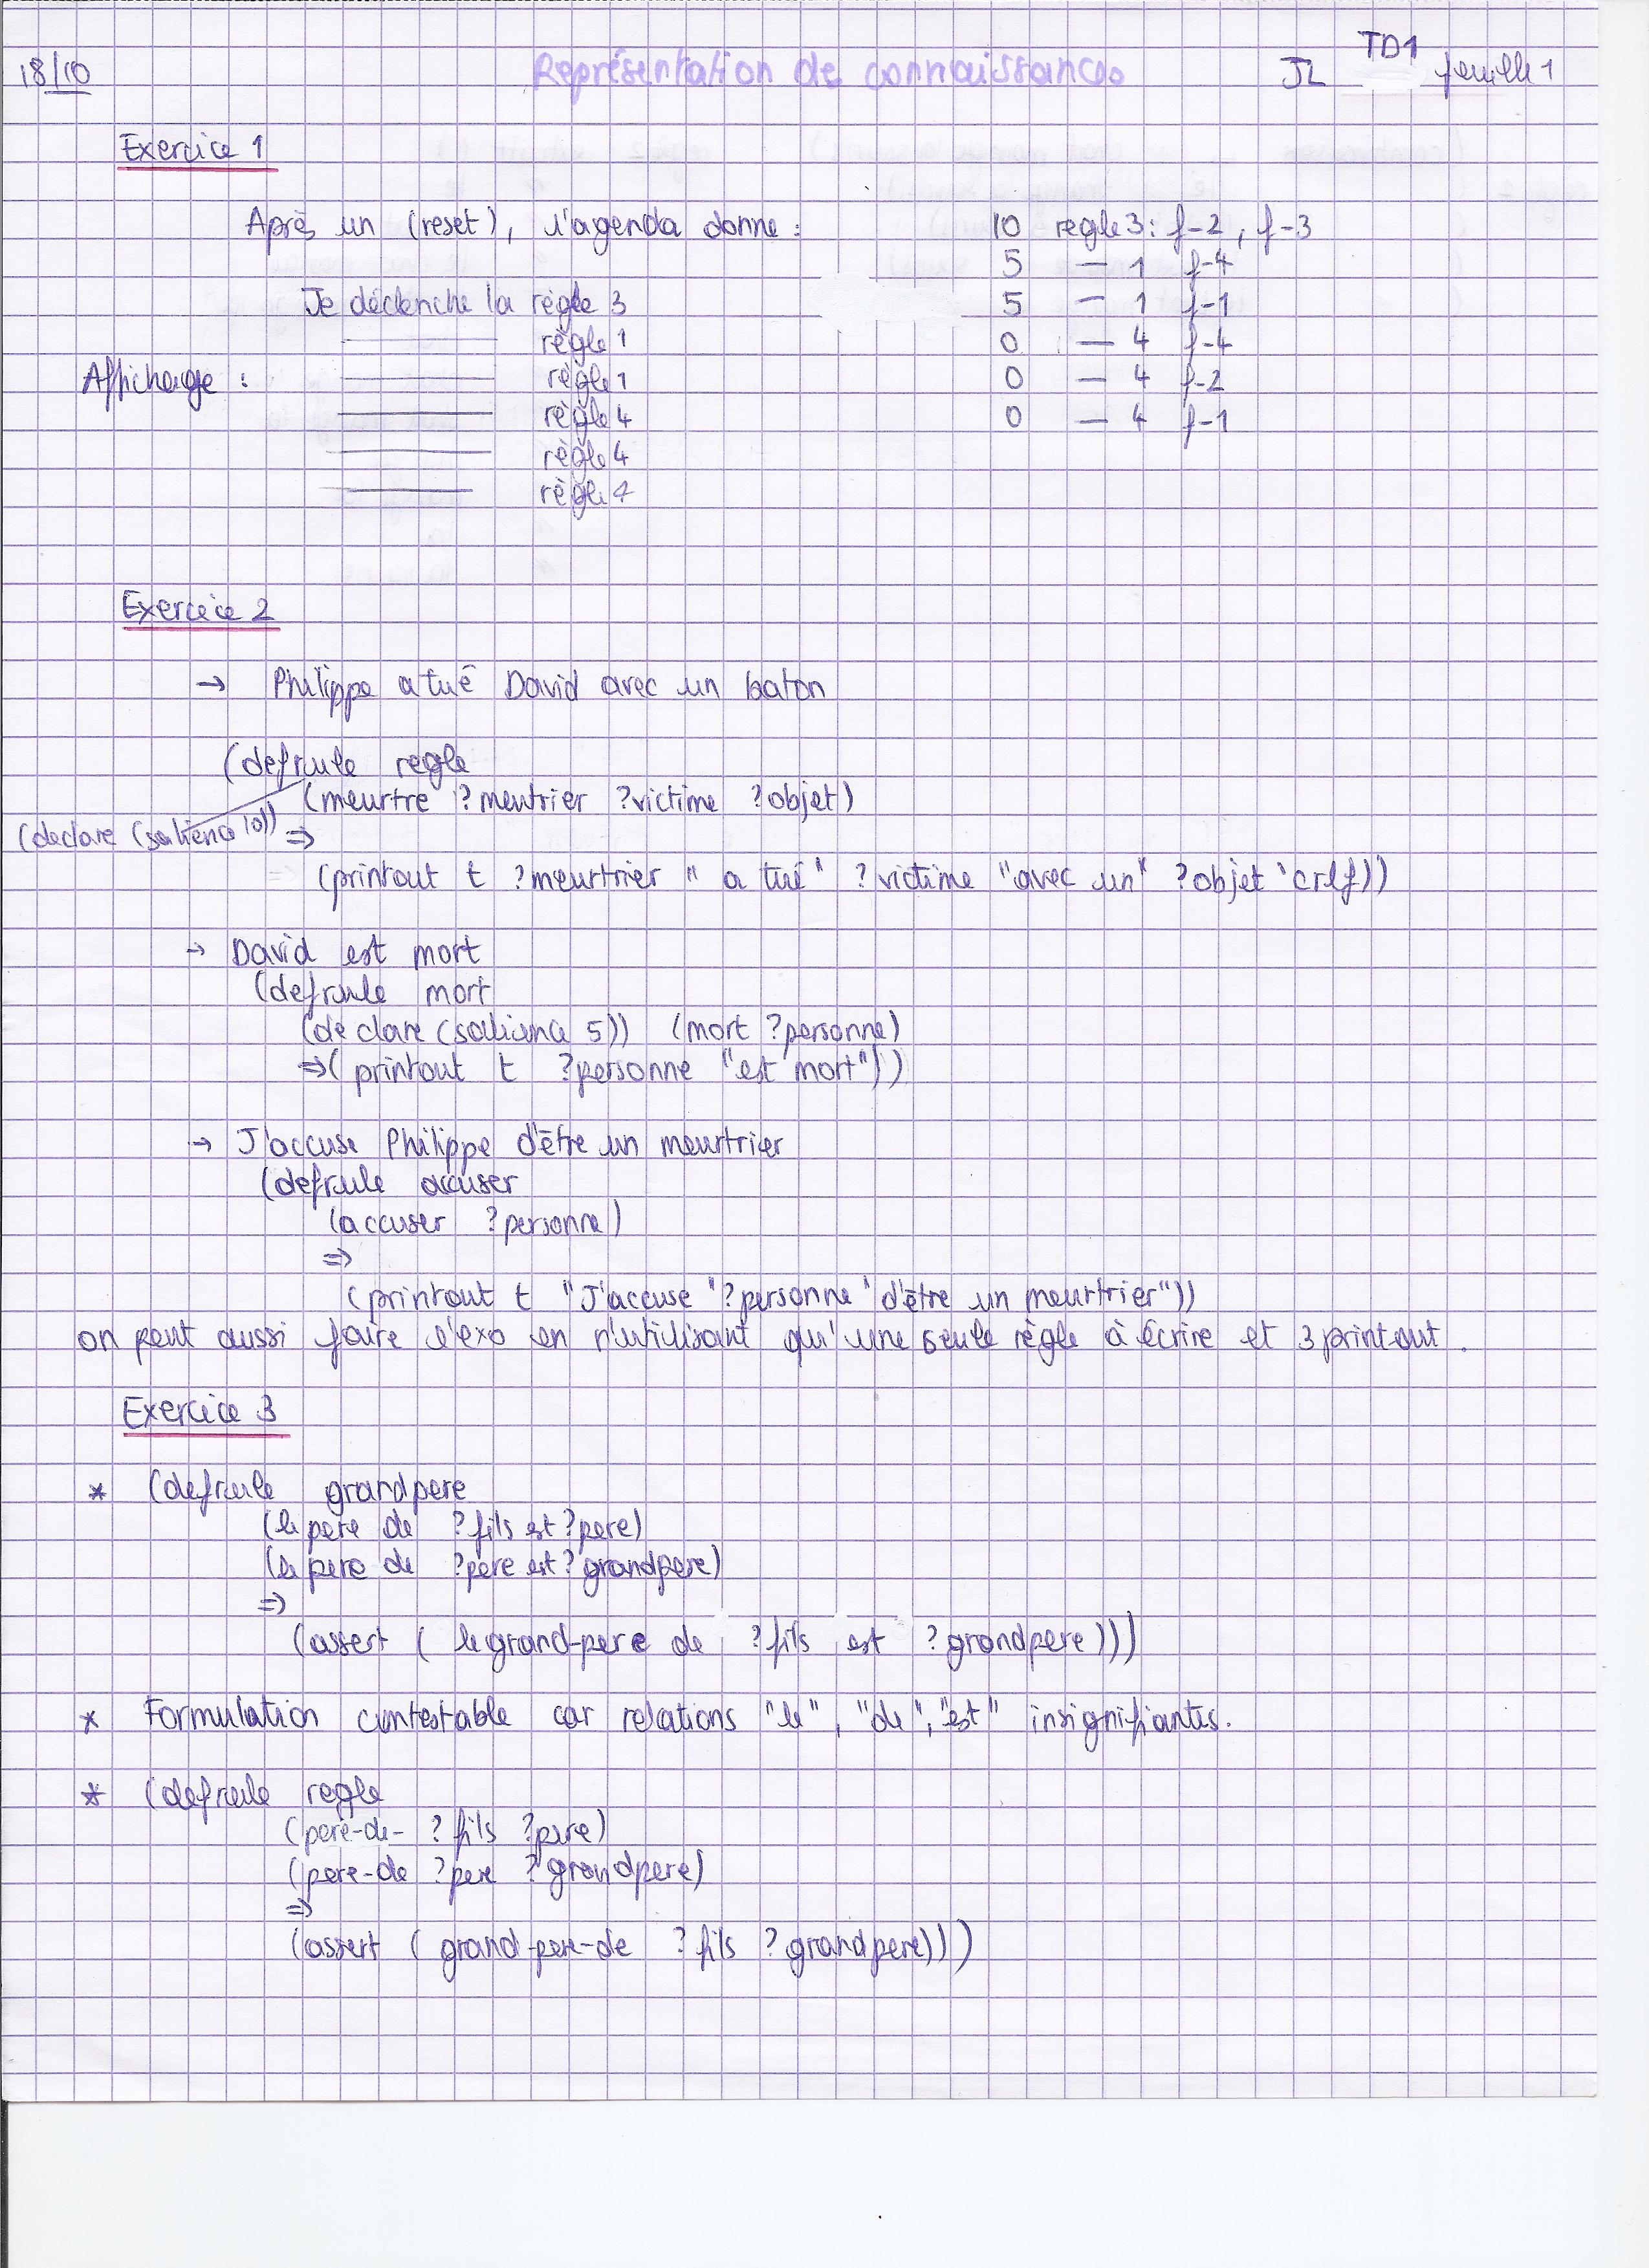 18/10 Représentation de connaissances JL TD1 feuille 1
Exercice 1
Après un (reset), l'agenda donne : 10 regle 3 : f-2, f-3
5 — 1 f-4
Je déclenche la règle 3 5 — 1 f-1
——— règle 1 0 — 4 f-4
Affichage : ——— règle 1 0 — 4 f-2
——— règle 4 0 — 4 f-1
——— règle 4
——— règle 4
Exercice 2
→ Philippe a tué David avec un baton
(defrule regle
(meurtre ?meutrier ?victime ?objet)
(declare (salience 10)) =>
(printout t ?meurtrier " a tué" ?victime "avec un" ?objet 'crlf))
→ David est mort
(defrule mort
(declare (salience 5)) (mort ?personne)
=>( printout t ?personne "est mort"))
→ J'accuse Philippe d'être un meurtrier
(defrule accuser
(accuser ?personne)
=>
(printout t "J'accuse "?personne" d'être un meurtrier"))
on peut aussi faire l'exo en n'utilisant qu'une seule règle à écrire et 3 printout.
Exercice 3
* (defrule grandpere
(le pere de ?fils est ?pere)
(le pere de ?pere est ?grandpere)
=>
(assert ( le grand-pere de ?fils est ?grandpere)))
* Formulation contestable car relations "le", "de", "est" insignifiantes.
* (defrule regle
(pere-de- ?fils ?pere)
(pere-de ?pere ?grandpere)
=>
(assert ( grand-pere-de ?fils ?grandpere)))